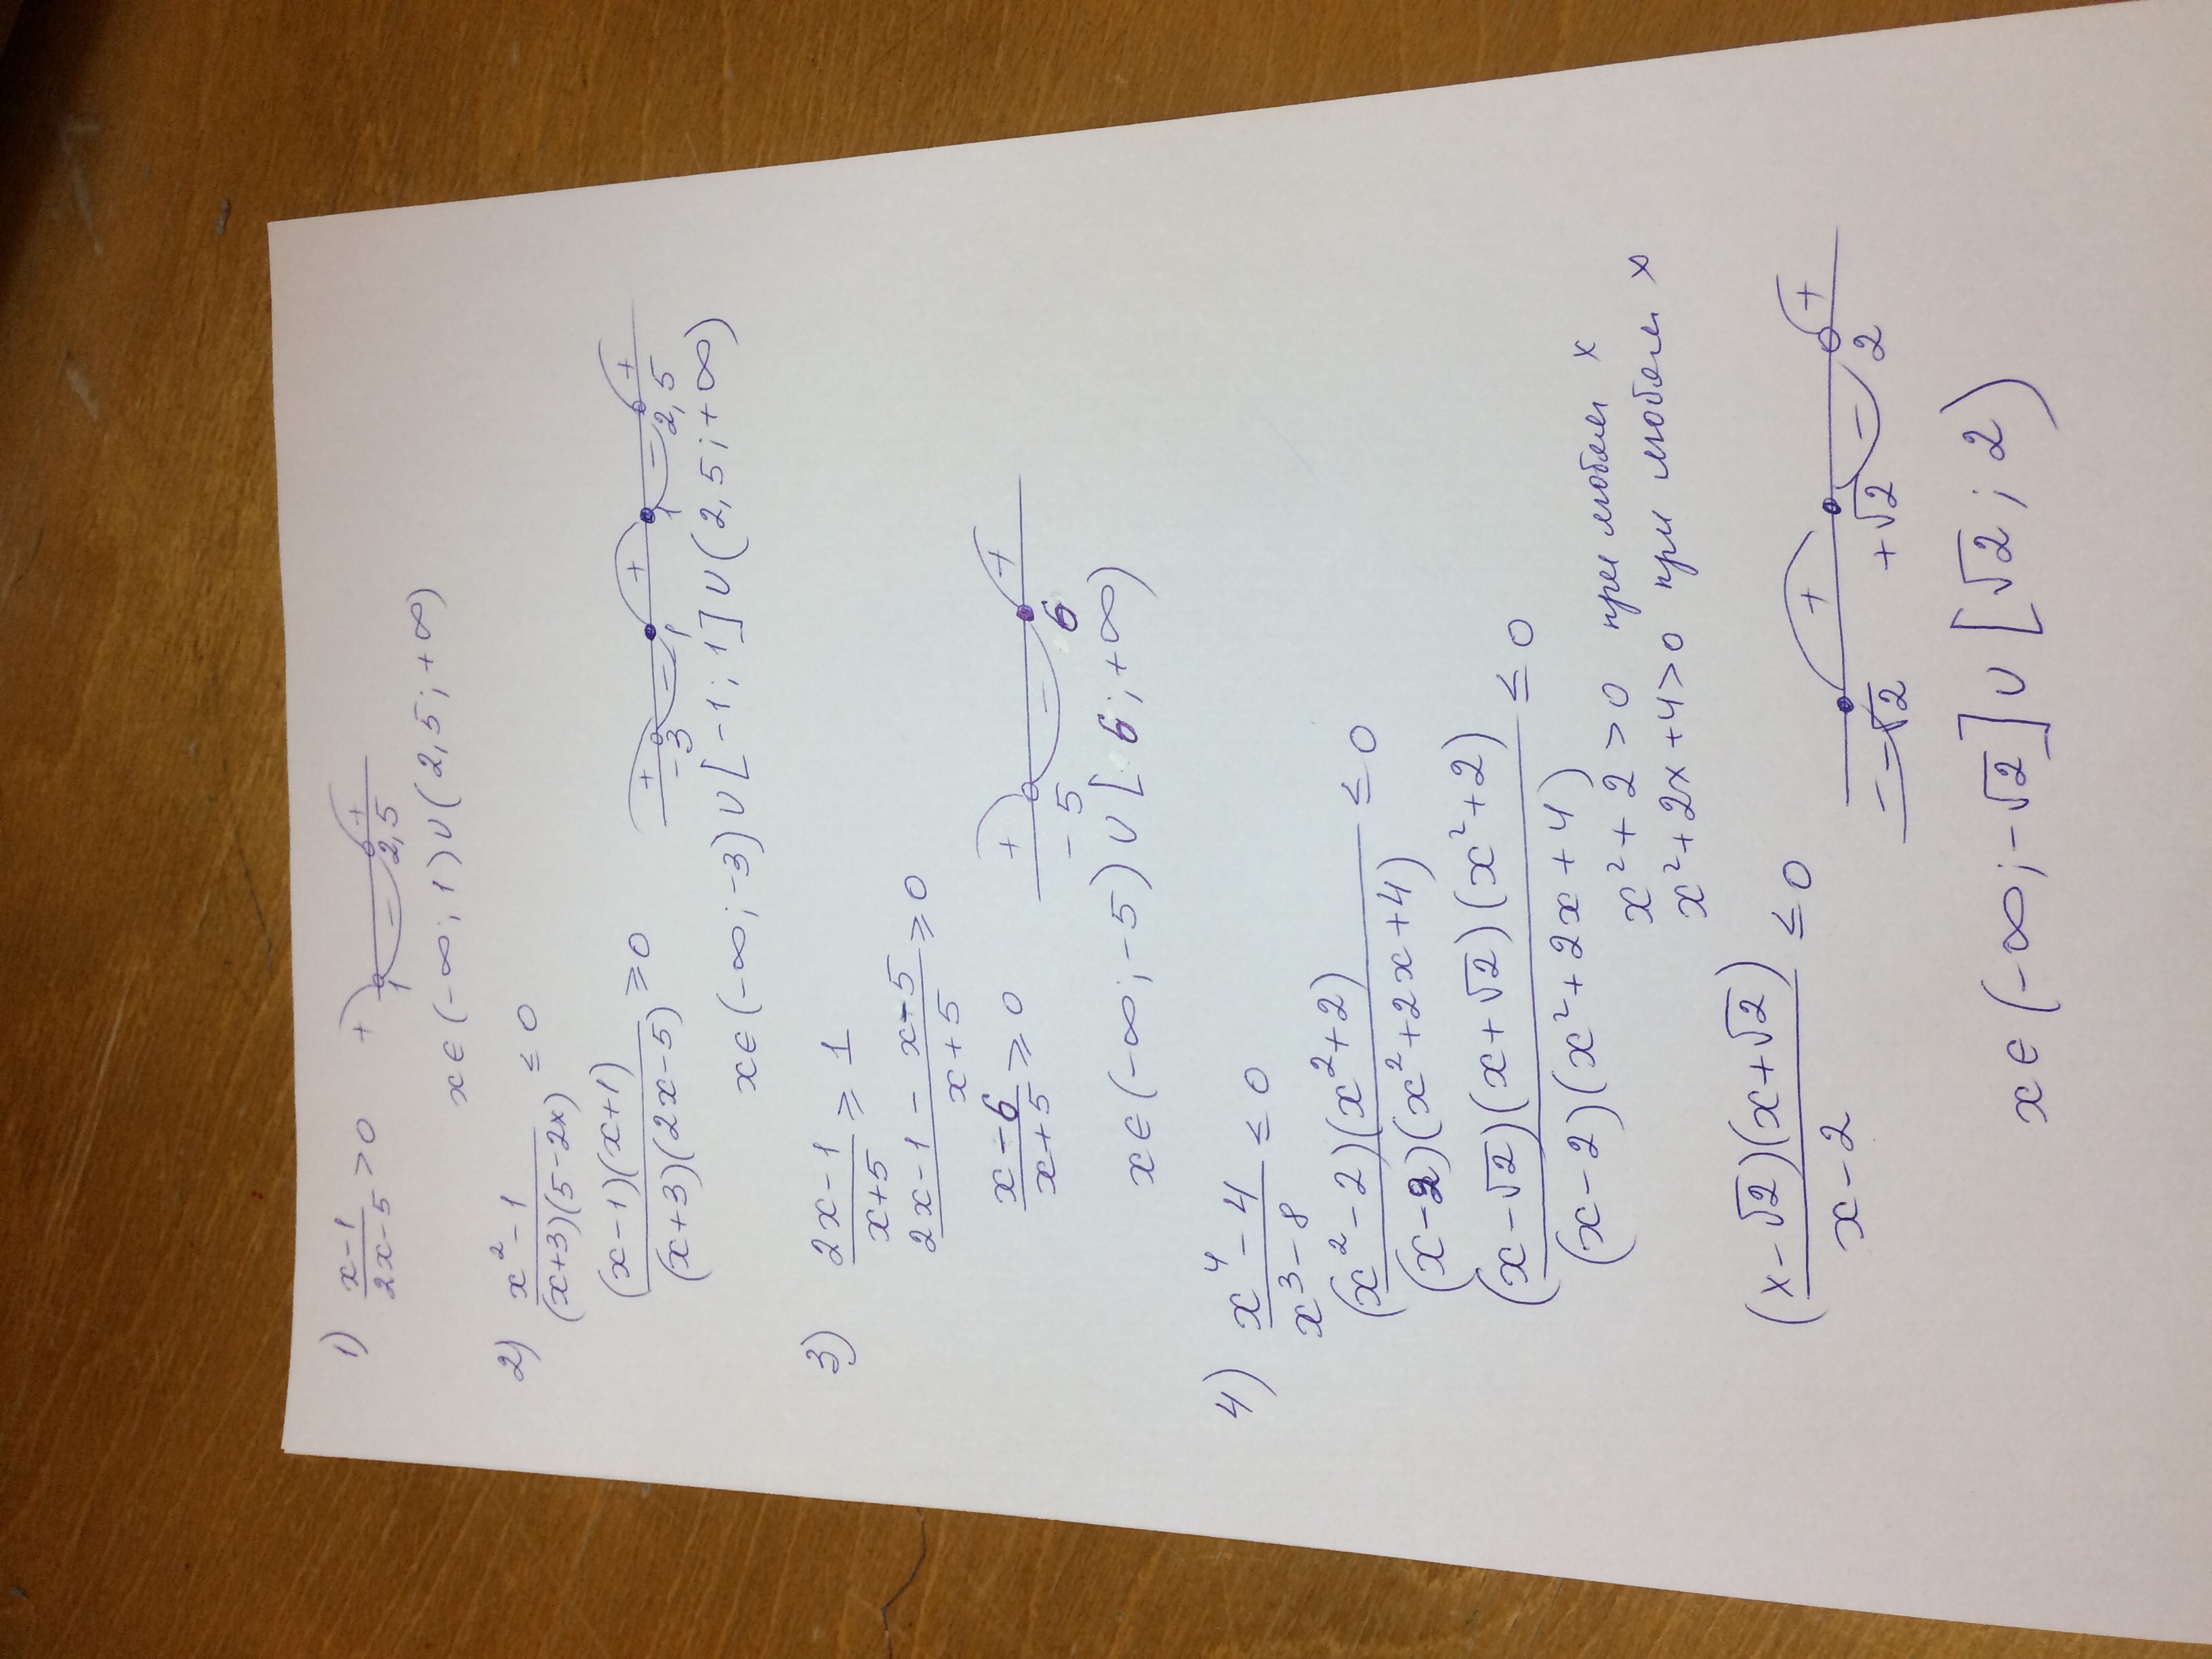 1) (x-1)/(2x-5) > 0 + - + 1 2,5
x ∈ (-∞; 1) ∪ (2,5; +∞)
2) (x²-1)/((x+3)(5-2x)) ≤ 0
((x-1)(x+1))/((x+3)(2x-5)) ≥ 0 + - + - + -3 -1 1 2,5
x ∈ (-∞; -3) ∪ [-1; 1] ∪ (2,5; +∞)
3) (2x-1)/(x+5) ≥ 1
(2x-1 - x-5)/(x+5) ≥ 0
(x-6)/(x+5) ≥ 0 + - + -5 6
x ∈ (-∞; -5) ∪ [6; +∞)
4) (x⁴-4)/(x³-8) ≤ 0
((x²-2)(x²+2))/((x-2)(x²+2x+4)) ≤ 0
((x-√2)(x+√2)(x²+2))/((x-2)(x²+2x+4)) ≤ 0
x²+2>0 при любом x
x²+2x+4>0 при любом x
((x-√2)(x+√2))/(x-2) ≤ 0 - + - + -√2 +√2 2
x ∈ (-∞; -√2] ∪ [√2; 2)